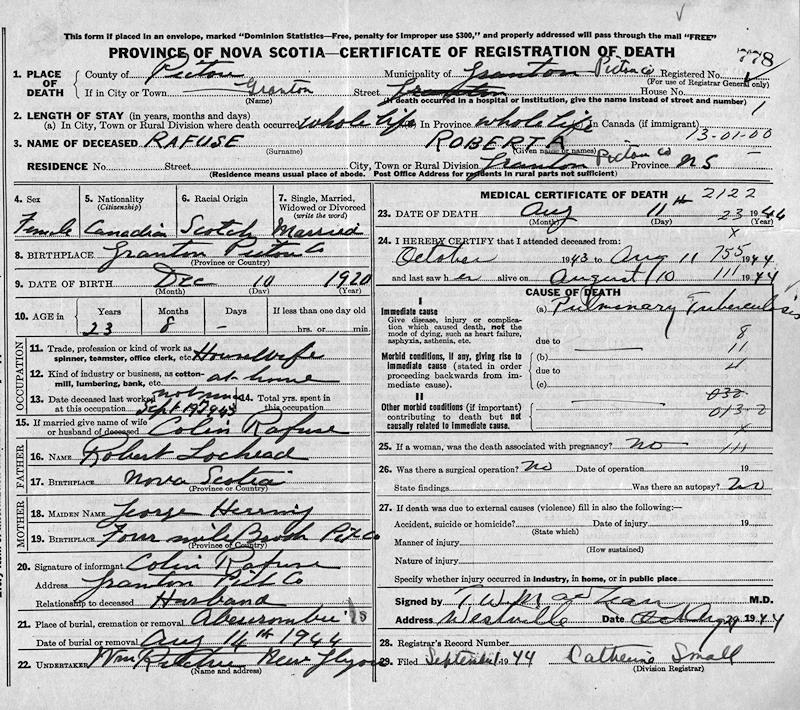 This form if placed in an envelope, marked "Dominion Statistics—Free, penalty for improper use $300," and properly addressed will pass through the mail "FREE"
PROVINCE OF NOVA SCOTIA—CERTIFICATE OF REGISTRATION OF DEATH
778
1. PLACE OF DEATH
County of Pictou Municipality of Granton Pictou Co Registered No.
(For use of Registrar General only)
If in City or Town Granton Street Granton House No.
(Name) (If death occurred in a hospital or institution, give the name instead of street and number)
2. LENGTH OF STAY (in years, months and days)
(a) In City, Town or Rural Division where death occurred whole life In Province whole life In Canada (if immigrant)
13-01-00
3. NAME OF DECEASED RAFUSE ROBERTA
(Surname) (Given name or names)
RESIDENCE No. Street City, Town or Rural Division Granton Pictou Co Province NS
(Residence means usual place of abode. Post Office Address for residents in rural parts not sufficient)
4. Sex
Female
5. Nationality (Citizenship)
Canadian
6. Racial Origin
Scotch
7. Single, Married, Widowed or Divorced (write the word)
Married
8. BIRTHPLACE Granton Pictou Co
(Province or Country)
9. DATE OF BIRTH Dec 10 1920
(Month) (Day) (Year)
10. AGE in Years Months Days If less than one day old
23 8 - hrs. or min.
OCCUPATION
11. Trade, profession or kind of work as spinner, teamster, office clerk, etc. Housewife
12. Kind of industry or business, as cotton-mill, lumbering, bank, etc. at home
13. Date deceased last worked at this occupation Sept 1943
14. Total yrs. spent in this occupation
15. If married give name of wife or husband of deceased Colin Rafuse
FATHER
16. NAME Robert Lochead
17. BIRTHPLACE Nova Scotia
(Province or Country)
MOTHER
18. MAIDEN NAME George Herring
19. BIRTHPLACE Four mile Brook Pict Co
(Province or Country)
20. Signature of informant Colin Rafuse
Address Granton Pict Co
Relationship to deceased Husband
21. Place of burial, cremation or removal Abercrombie
Date of burial or removal Aug 14th 1944
22. UNDERTAKER Wm Ritchie New Glasgow
(Name and address)
MEDICAL CERTIFICATE OF DEATH 2122
23. DATE OF DEATH Aug 11th 23 1944
(Month) (Day) (Year)
24. I HEREBY CERTIFY that I attended deceased from:
October 1943 to Aug 11 755 1944
and last saw her alive on August 10 111 1944
CAUSE OF DEATH
I
Immediate cause
Give disease, injury or complication, which caused death, not the mode of dying, such as heart failure, asphyxia, asthenia, etc.
(a) Pulmonary Tuberculosis
due to
8
Morbid conditions, if any, giving rise to immediate cause (stated in order proceeding backwards from immediate cause).
(b) 11
due to 4
(c)
II
Other morbid conditions (if important) contributing to death but not causally related to immediate cause.
032
013-2
25. If a woman, was the death associated with pregnancy? no 111
26. Was there a surgical operation? no Date of operation 19
State findings Was there an autopsy? no
27. If death was due to external causes (violence) fill in also the following:—
Accident, suicide or homicide? Date of injury 19
(State which)
Manner of injury
(How sustained)
Nature of injury
Specify whether injury occurred in industry, in home, or in public place
Signed by M.D.
Address Westville Date Aug 1944
28. Registrar's Record Number
29. Filed September 1944 Catherine Small
(Division Registrar)